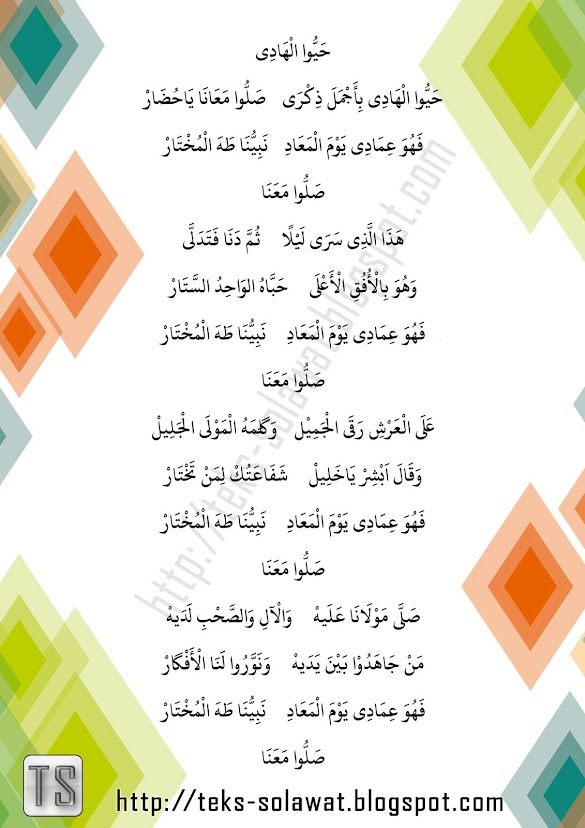 حَيُّوا الْهَادِى
حَيُّوا الْهَادِى بِأَجْمَلَ ذِكْرَى    صَلُّوا مَعَانَا يَاحُضَارْ
فَهُوَ عِمَادِى يَوْمَ الْمَعَادِ    نَبِيُّنَا طَهَ الْمُخْتَارْ
صَلُّوا مَعَنَا
هَذَا الَّذِى سَرَى لَيْلًا    ثُمَّ دَنَا فَتَدَلَّى
وَهُوَ بِالْأُفُقِ الْأَعْلَى    حَبَّاهُ الوَاحِدُ السَّتَارْ
فَهُوَ عِمَادِى يَوْمَ الْمَعَادِ    نَبِيُّنَا طَهَ الْمُخْتَارْ
صَلُّوا مَعَنَا
عَلَى الْعَرْشِ رَقَى الْجَمِيْل    وَكَلَمَهُ الْمَوْلَى الْجَلِيلْ
وَقَالَ اَبْشِرْ يَاخَلِيلْ    شَفَاعَتُكْ لِمَنْ تَخْتَارْ
فَهُوَ عِمَادِى يَوْمَ الْمَعَادِ    نَبِيُّنَا طَهَ الْمُخْتَارْ
صَلُّوا مَعَنَا
صَلَّى مَوْلَانَا عَلَيهْ    وَالْآلِ وَالصَّحْبِ لَدَيهْ
مَنْ جَاهَدُوْا بَيْنَ يَدَيهْ    وَنَوَّرُوا لَنَا الْأَفْكَارْ
فَهُوَ عِمَادِى يَوْمَ الْمَعَادِ    نَبِيُّنَا طَهَ الْمُخْتَارْ
صَلُّوا مَعَنَا
http://teks-solawat.blogspot.com
TS http://teks-solawat.blogspot.com